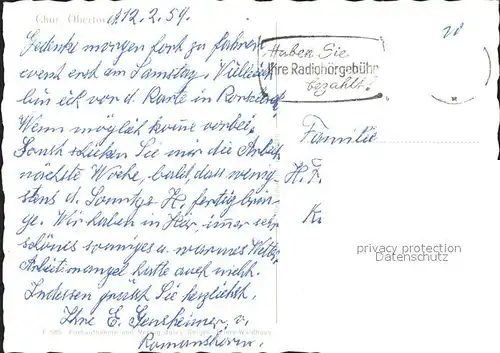 Chur, Obertor
d. 12.2.59.
Gedenke morgen fort zu fahren
event. erst am Samstag. Vielleicht
bin ich vor d. Karte in
Wenn möglich komme vorbei.
Sonst schicken Sie mir die Arbeit
nächste Woche, bald, dass wenig-
stens d. Sonntgs H. fertig brin-
ge. Wir haben in Hier, imer sehr
schönes sonniges u. warmes Wetter
Arbeitsmangel hatte auch nicht.
Indessen grüsst Sie herzlichst,
Ihre E. Gensheimer, v.
Romanshorn.
Haben Sie
Ihre Radiohörgebühr
bezahlt?
Familie
H. F.
K.
privacy protection
Datenschutz